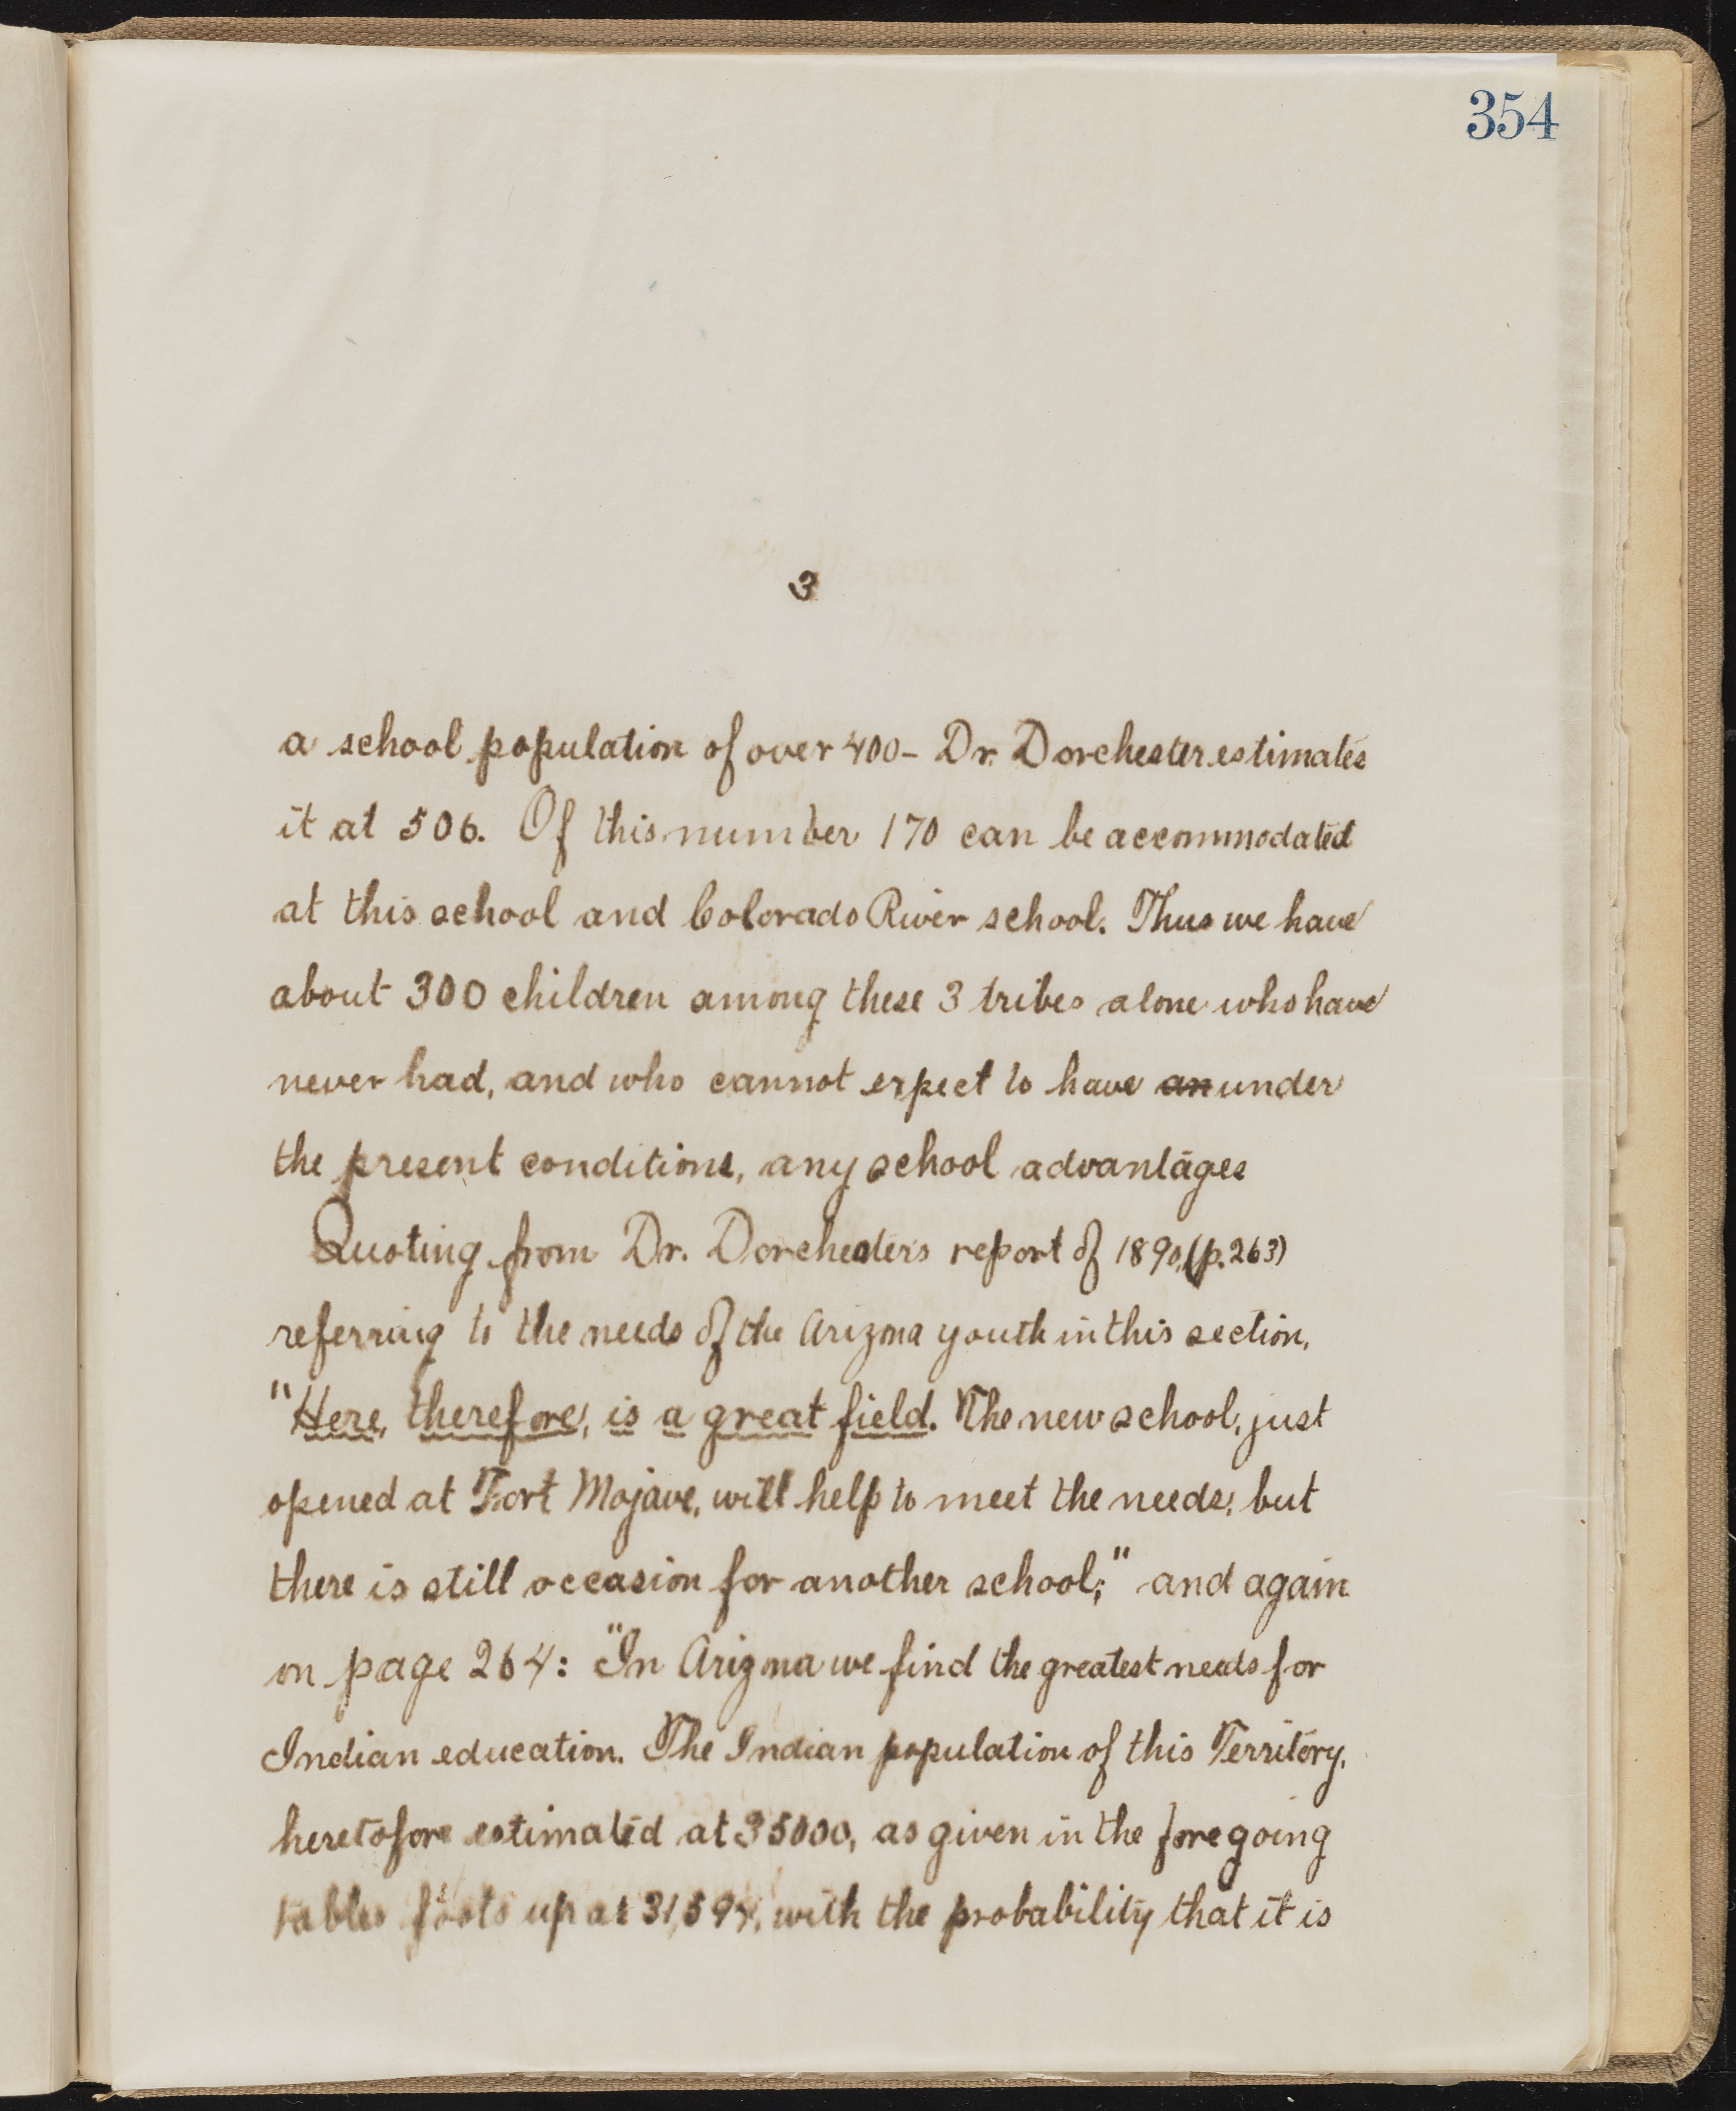 354
3
a school population of over 400- Dr. Dorchester estimates
it at 506. Of this number 170 can be accommodated
at this school and Colorado River school. Thus we have
about 300 children among these 3 tribes alone who have
never had, and who cannot expect to have an under
the present conditions, any school advantages
Quoting from Dr. Dorchester's report of 1890, (p. 263)
referring to the needs of the Arizona youth in this section,
"Here, therefore, is a great field. The new school, just
opened at Fort Mojave, will help to meet the needs; but
there is still occasion for another school;" and again
on page 264: "In Arizona we find the greatest needs for
Indian education. The Indian population of this Territory,
heretofore estimated at 35000, as given in the foregoing
tables foots up at with the probability that it is